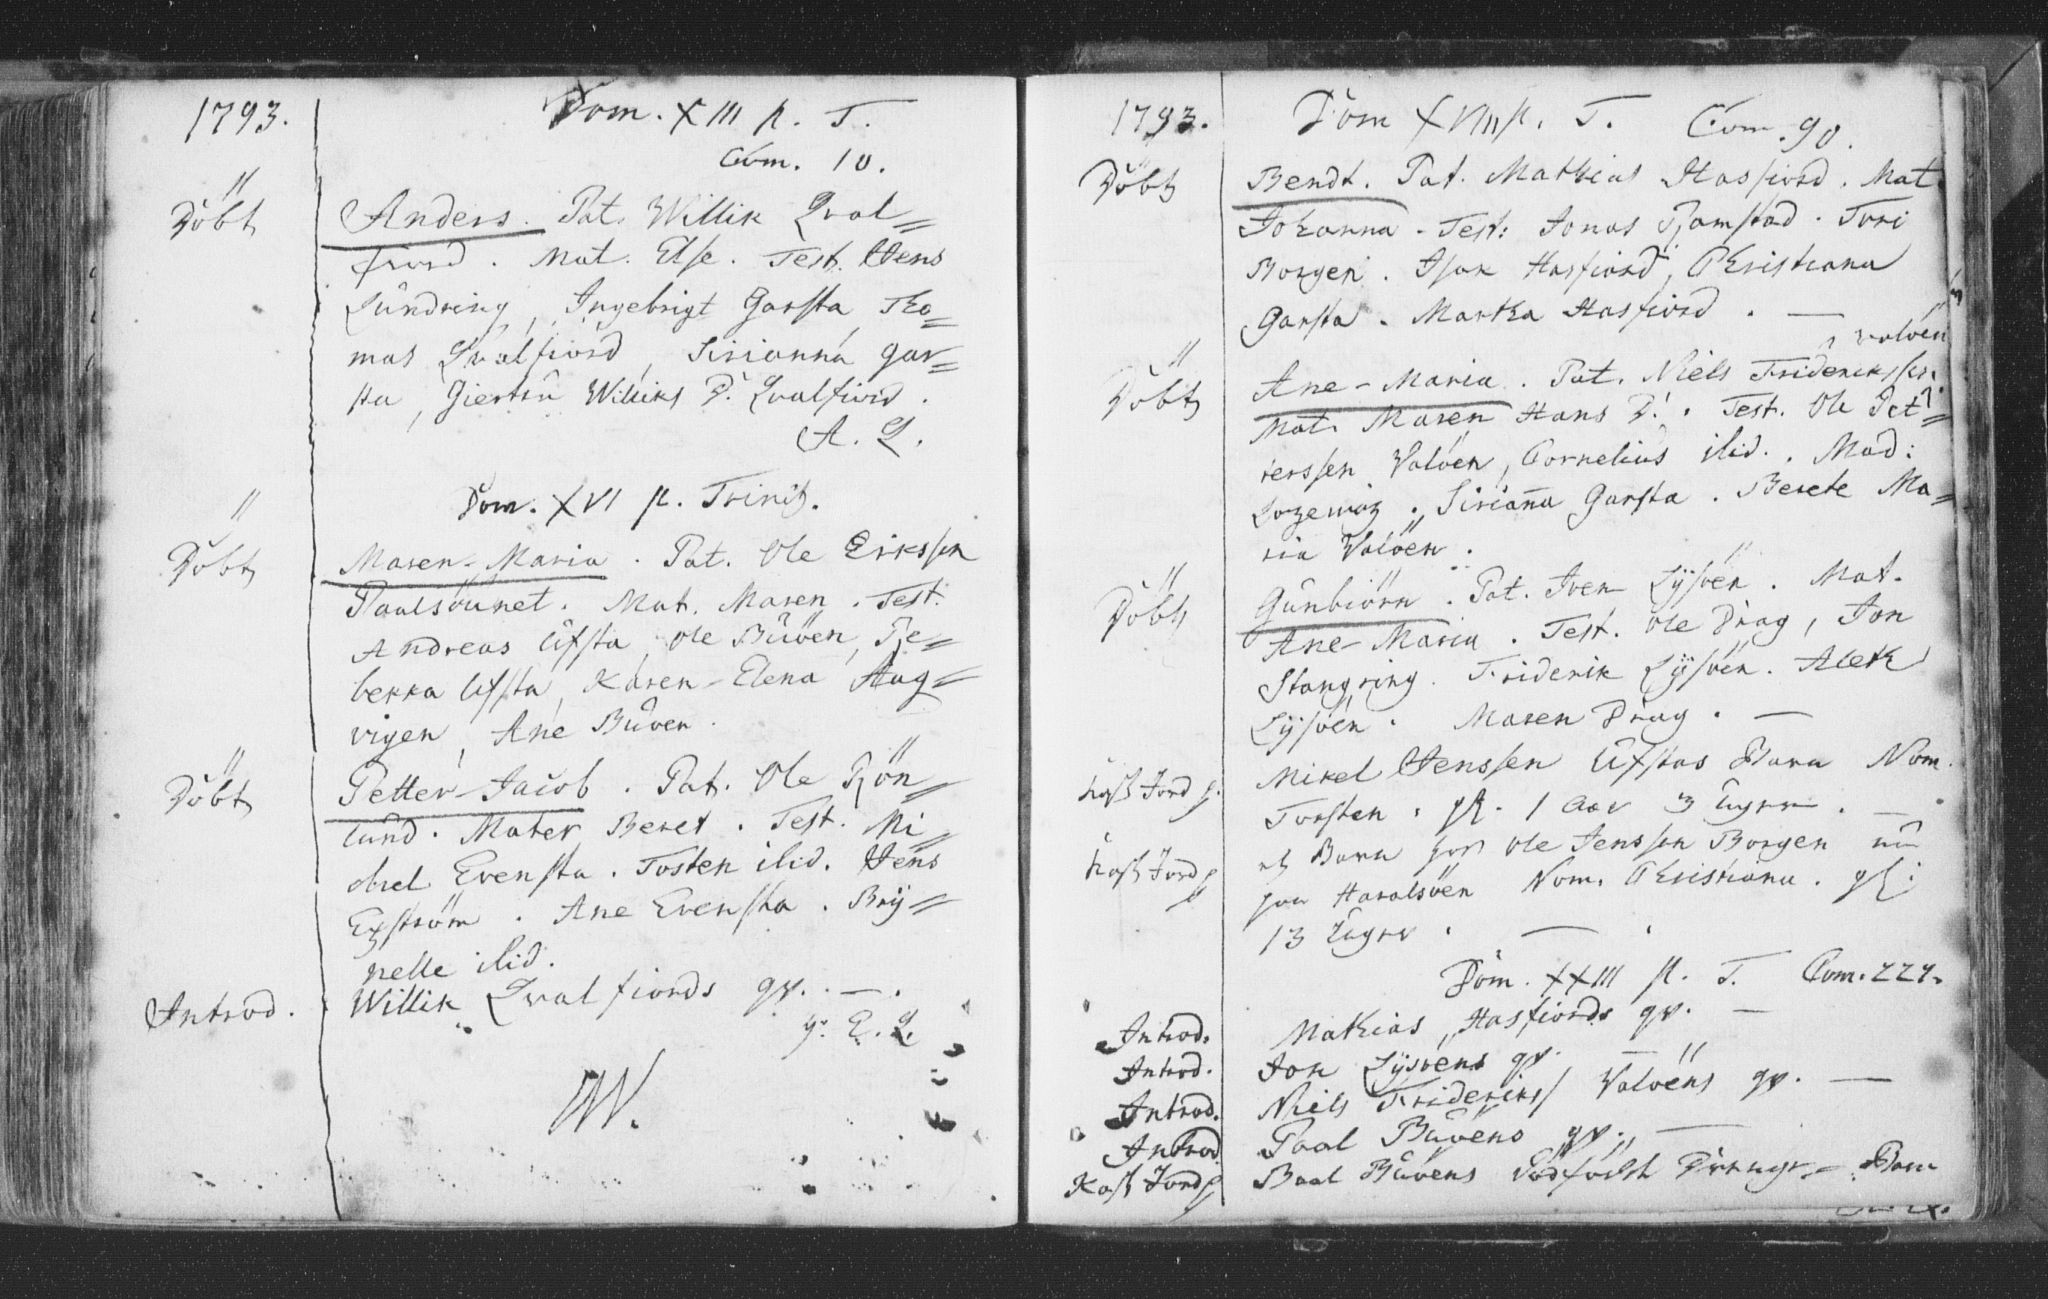 1793. Dom. XIII p. T.
Com. 10.
Döbt Anders. Pat. Willik Qval=
fiord. Mat. Else. Test. Jens
Lundring, Ingebrigt Garsta Tho=
mas Qvalfiord, Sirianna Gar=
sta, Giertru Williks D. Qvalfiord.
A. L.
Dom. XVI p. Trinit.
Döbt Maren-Maria. Pat. Ole Erikssen
Paalsöunet. Mat. Maren. Test.
Andreas Ufsta, Ole Buöen, Re=
bekka Ufsta, Karen-Elena Aug=
vigen, Ane Buöen.
Döbt Petter-Jacob. Pat. Ole Rön=
lund. Mater Beret. Test. Mi=
chel Evensta. Tosten ibid. Jens
Exström. Ane Evensta. Brÿ=
nelle ibid.
Introd. Willik Qvalfiords qv. —.
E. L.
W.
1793. Dom XVIII p. T. Com. 90.
Döbt Bendt. Pat. Mathias Hasfiord. Mat.
Johanna. Test: Jonas Ramstad. Turi
Borgen. Isak Hasfiord, Christiana
Garsta. Martha Hasfiord. —
Valöen
Döbt Ane-Maria. Pat. Niels Fridrikssen.
Mat. Maren Hans D. Test. Ole Pet=
terssen Valöen, Cornelius ibid. Mad:
Sirianna Garsta. Berete Ma=
ria Valöen.
Döbt Gunbiörn. Pat. Iver Lÿsöen. Mat.
Ane-Maria. Test. Ole Drag, Jon
Stangring. Friderik Lÿsöen. Aleth
Lÿsöen. Maren Drag. —
Kast Jord p. Mikel Jenssen Ufstas Barn Nom.
Torsten. gl. 1 Aar 3 Uger. —
Kast Jord p et Barn for Ole Jenssen Borgen nu
paa Haralsöen Nom. Christiana. gl:
13 Uger. —
Dom. XXIII p. T. Com. 224.
Introd. Mathias Hasfiords qv. —
Introd. Jon Lÿsöens qv. —
Introd. Niels Frideriks Valöens qv. —
Introd Paal Buöens qv. —
Kast Jord p Baal Buöens Dödfödt Drenge- Barn